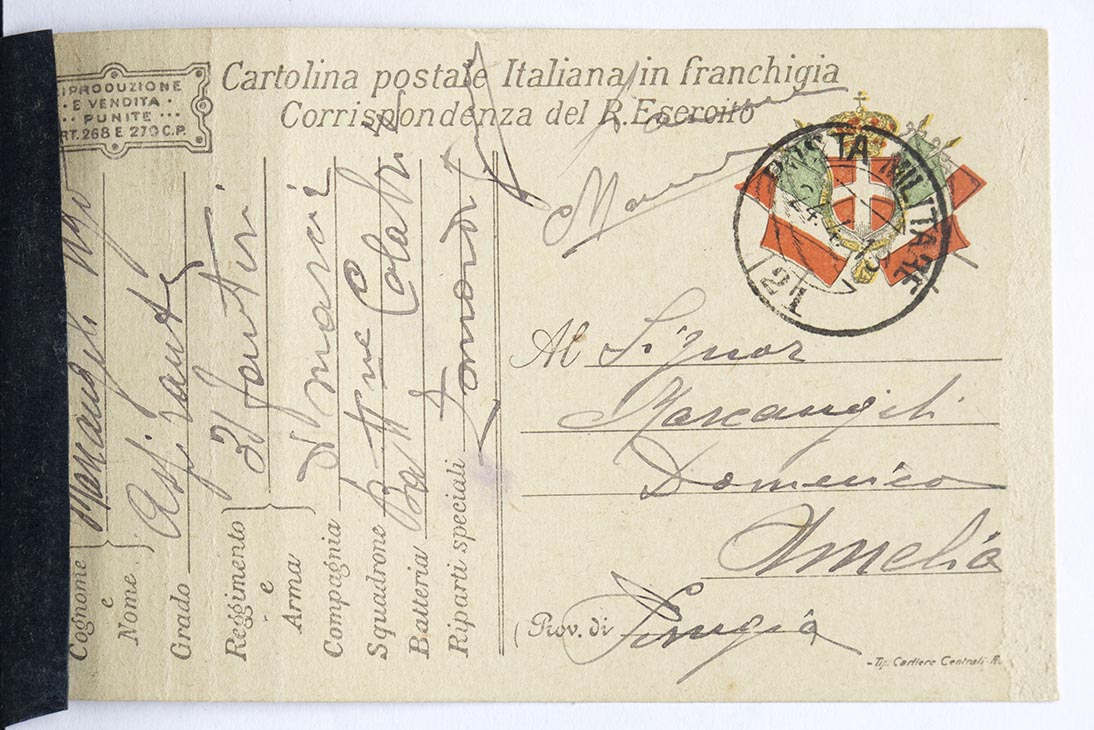 RIPRODUZIONE
E VENDITA
PUNITE
ART. 268 E 270 C.P.
Cartolina postale Italiana in franchigia
Corrispondenza del R. Esercito
POSTA MILITARE
21
Al Signor
Marcangeli
Domenico
Amelia
Prov. di Perugia
Tip. Cartiere Centrali-R.
Cognome e Nome Marcangeli Ugo
Grado Aspirante
Reggimento e Arma 21 Fanteri
Compagnia di marcia
Squadrone
Batteria
Riparti speciali